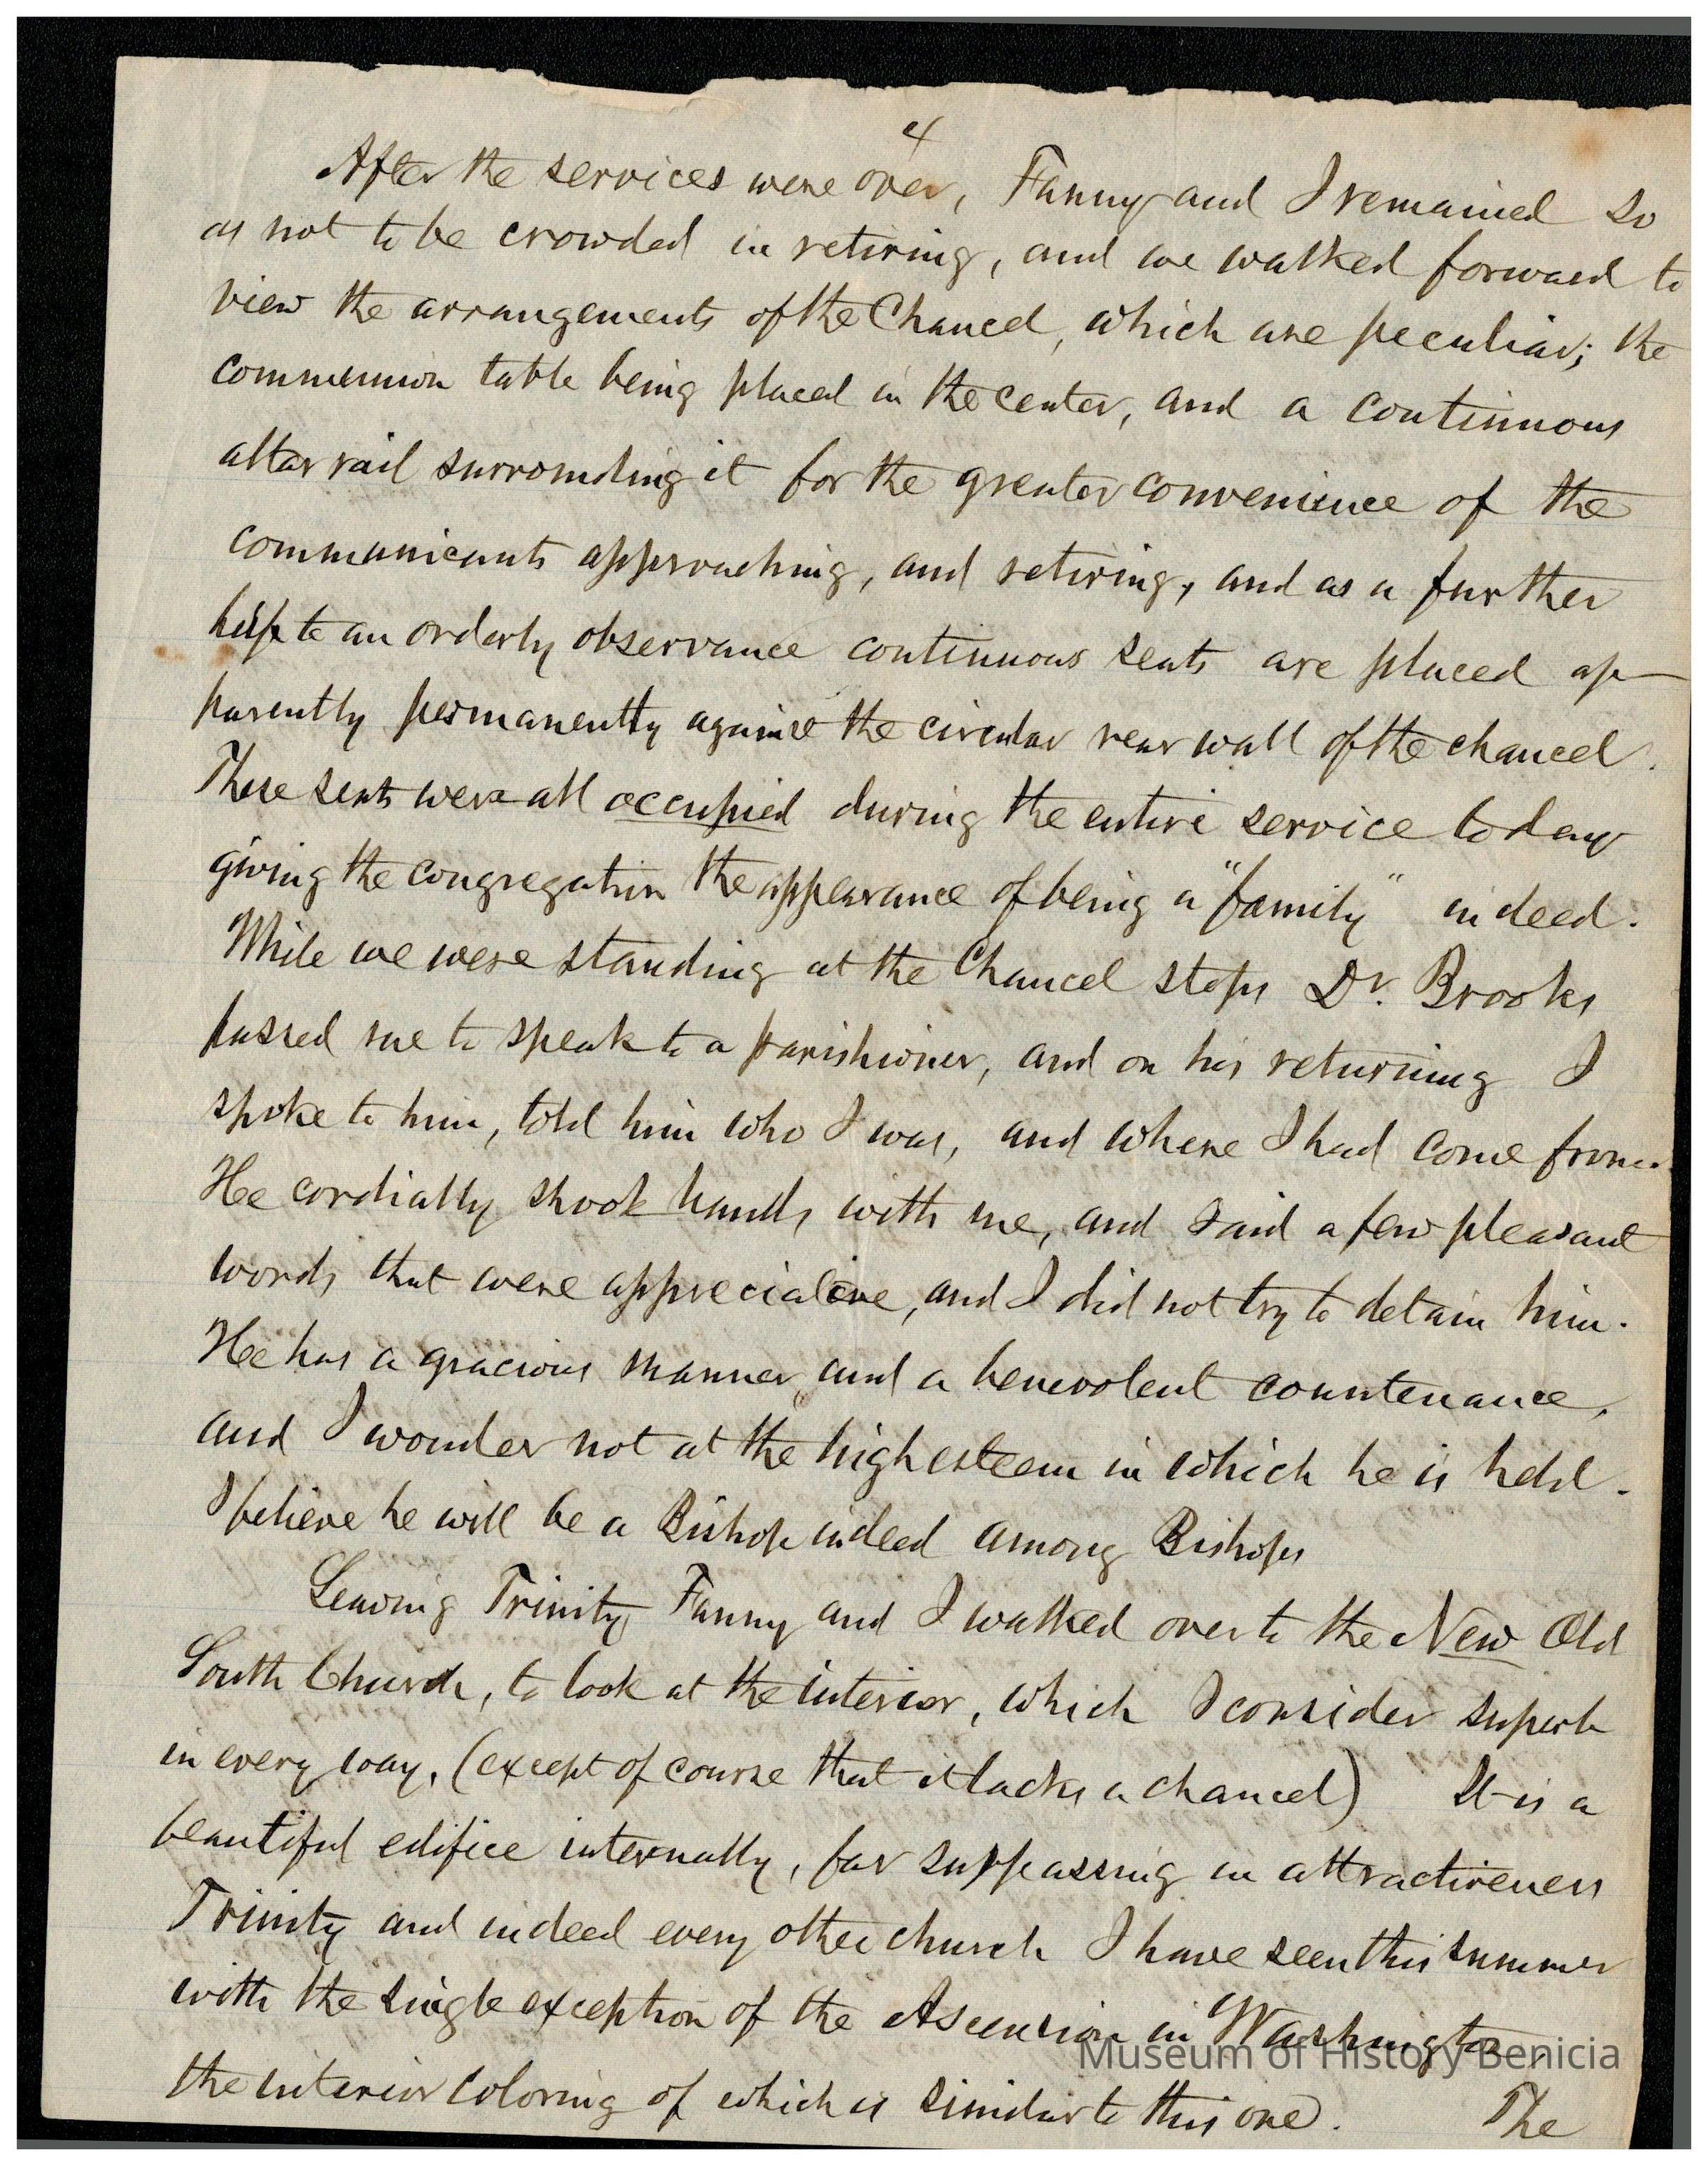 4
After the services were over, Fanny and I remained so
as not to be crowded in retiring, and we walked forward to
view the arrangements of the Chancel, which are peculiar; the
communion table being placed in the center, and a continuous
altar rail surrounding it for the greater convenience of the
communicants approaching, and retiring, and as a further
help to an orderly observance continuous seats are placed ap-
parently permanently against the circular rear wall of the chancel.
These seats were all occupied during the entire service today
giving the congregation the appearance of being a "family" indeed.
While we were standing at the Chancel steps Dr. Brooks
passed me to speak to a parishioner, and on his returning I
spoke to him, told him who I was, and where I had come from.
He cordially shook hands with me, and said a few pleasant
words that were appreciative, and I did not try to detain him.
He has a gracious manner, and a benevolent countenance,
and I wonder not at the high esteem in which he is held.
I believe he will be a Bishop indeed among Bishops
Leaving Trinity Fanny and I walked over to the New Old
South Church, to look at the interior, which I consider superb
in every way, (except of course that it lacks a chancel) It is a
beautiful edifice internally, far suppassing in attractiveness
Trinity and indeed every other church I have seen this summer
with the single exception of the Ascension in Washington,
the interior coloring of which is similar to this one. The
Museum of History Benicia